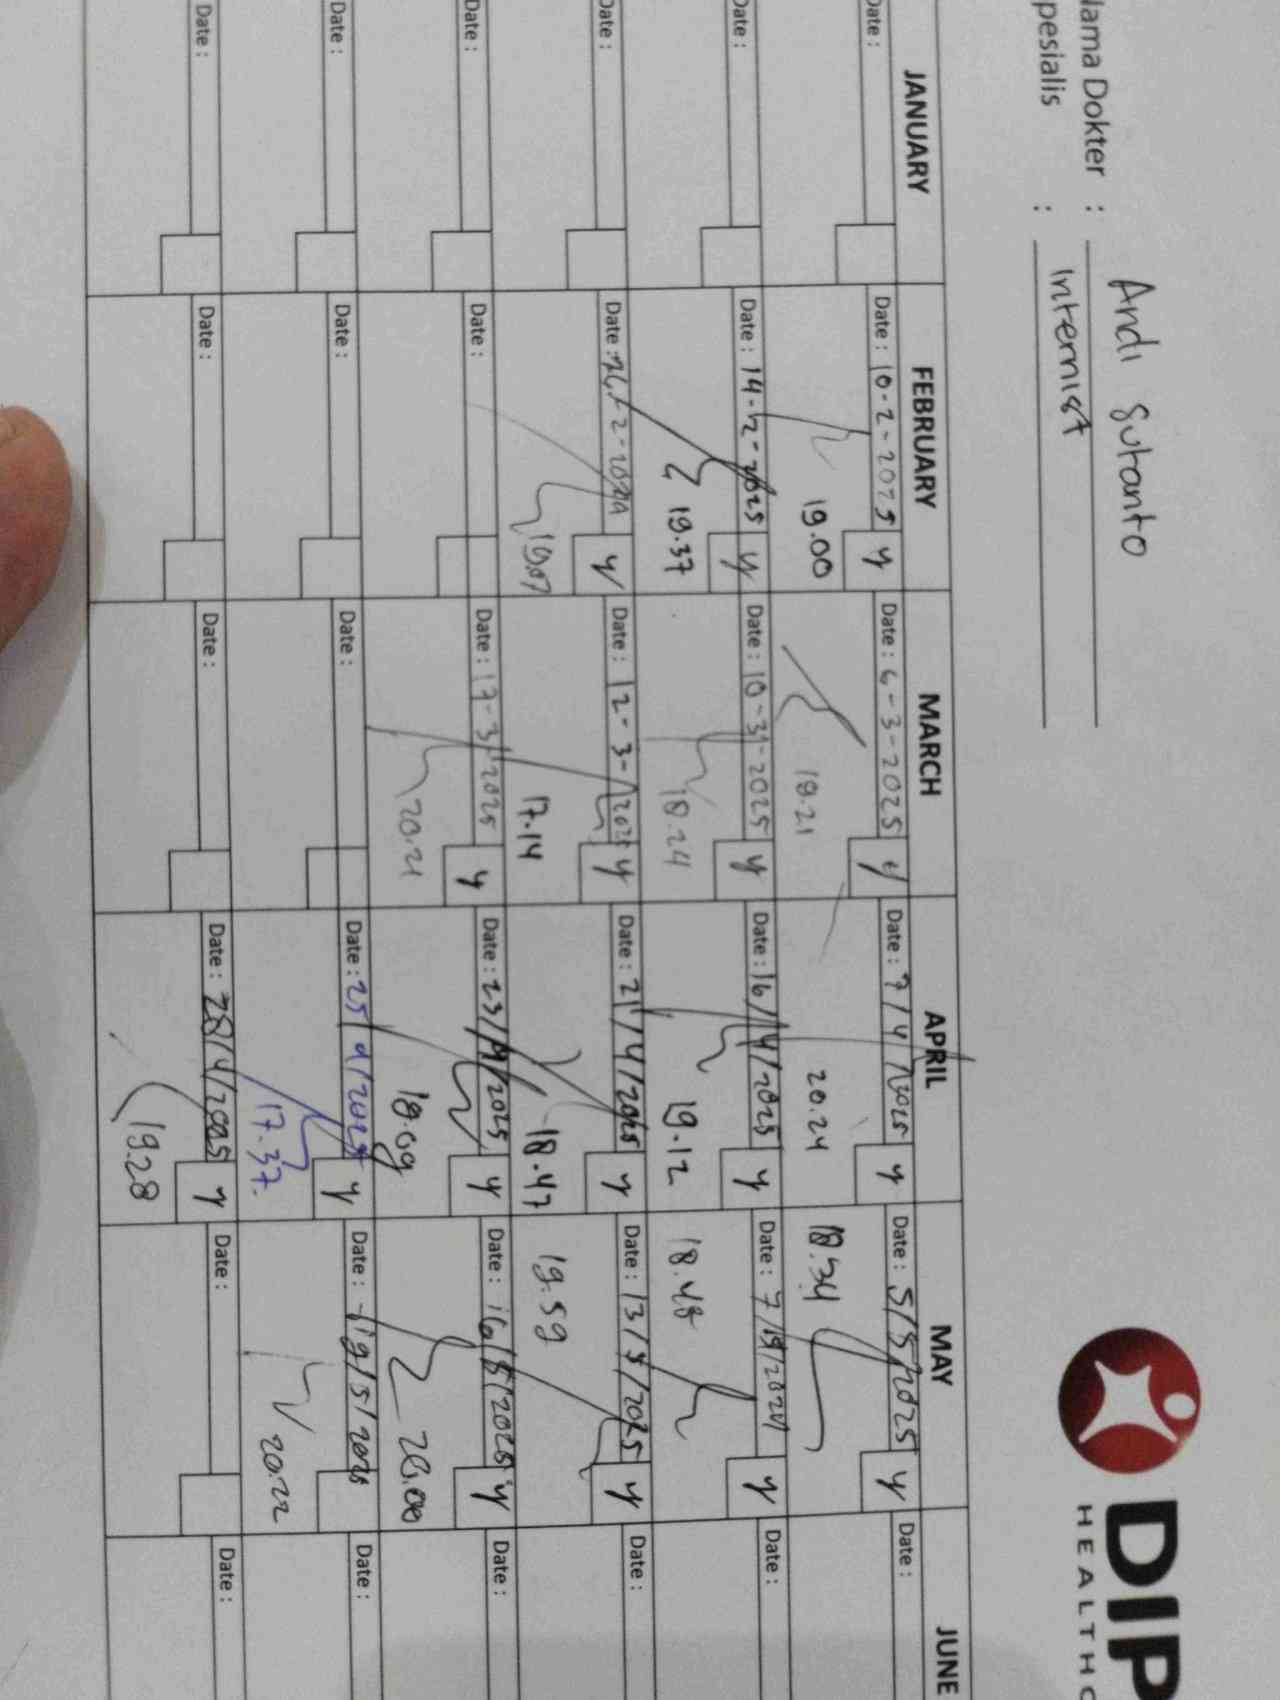 DIP
HEALTHC
lama Dokter : Andi Sutanto
pesialis : Internist
JANUARY FEBRUARY MARCH APRIL MAY JUNE
Date : Date : 10-2-2025 y Date : 6-3-2025 y Date : 7/4/2025 y Date : 5/5/2025 y Date :
19.00 18.21 20.24 18.34
Date : Date : 14-2-2025 y Date : 10-3-2025 y Date : 16/4/2025 y Date : 7/5/2025 y Date :
19.37 18.24 19.12 18.48
Date : Date : 26-2-2025 y Date : 12-3-2025 y Date : 21/4/2025 y Date : 13/5/2025 y Date :
19.07 17.14 18.47 19.59
Date : Date : Date : 17-3-2025 y Date : 23/4/2025 y Date : 16/5/2025 y Date :
20.21 18.09 20.00
Date : Date : Date : Date : 25/4/2025 y Date : 19/5/2025 Date :
17.37 20.22
Date : Date : Date : Date : 28/4/2025 y Date : Date :
19.28